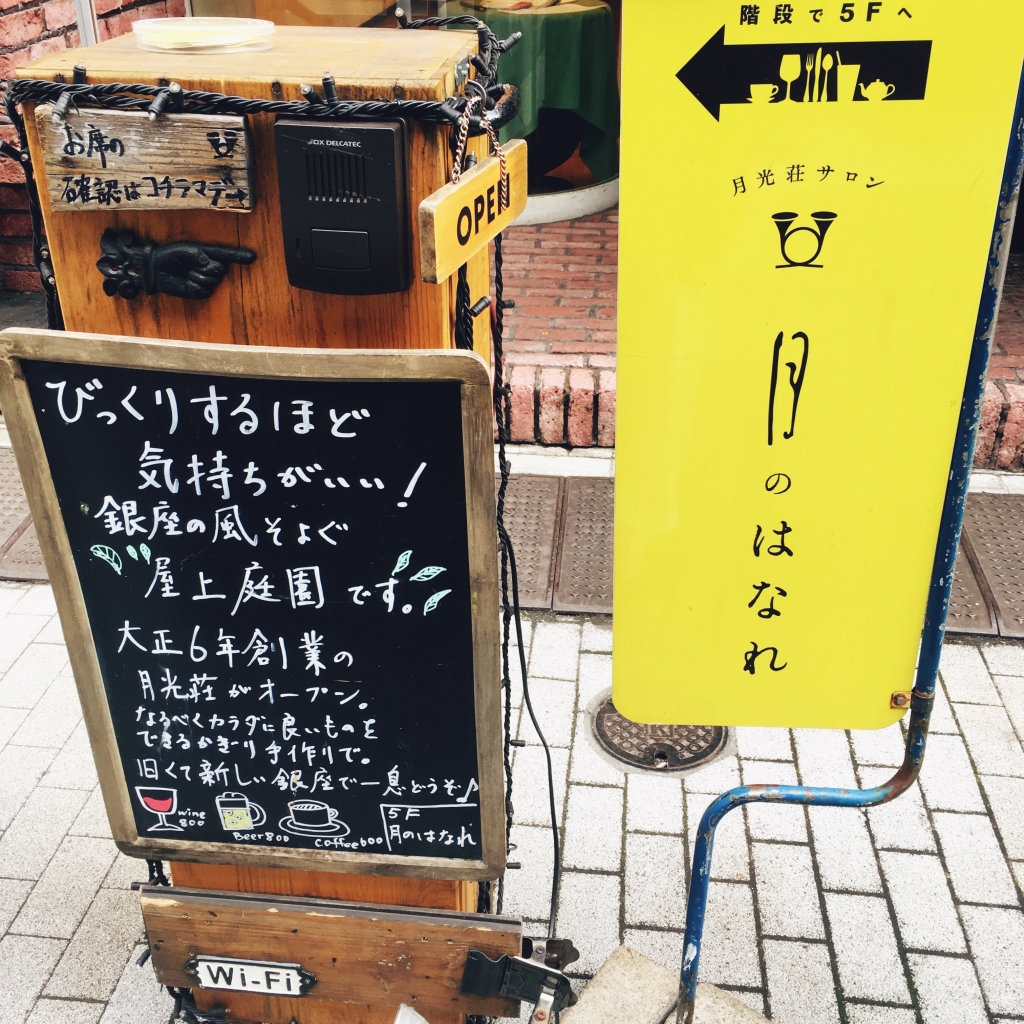 お席の
確認はコチラマデ→
DX DELCATEC
OPEN
びっくりするほど
気持ちがいい!
銀座の風そよぐ
屋上庭園です。
大正6年創業の
月光荘がオープン。
なるべくカラダに良いものを
できるかぎり手作りで。
旧くて新しい銀座で一息どうぞ♪
wine
800
Beer800
coffee600
5F
月のはなれ
Wi-Fi
階段で5Fへ
月光荘サロン
月のはなれ